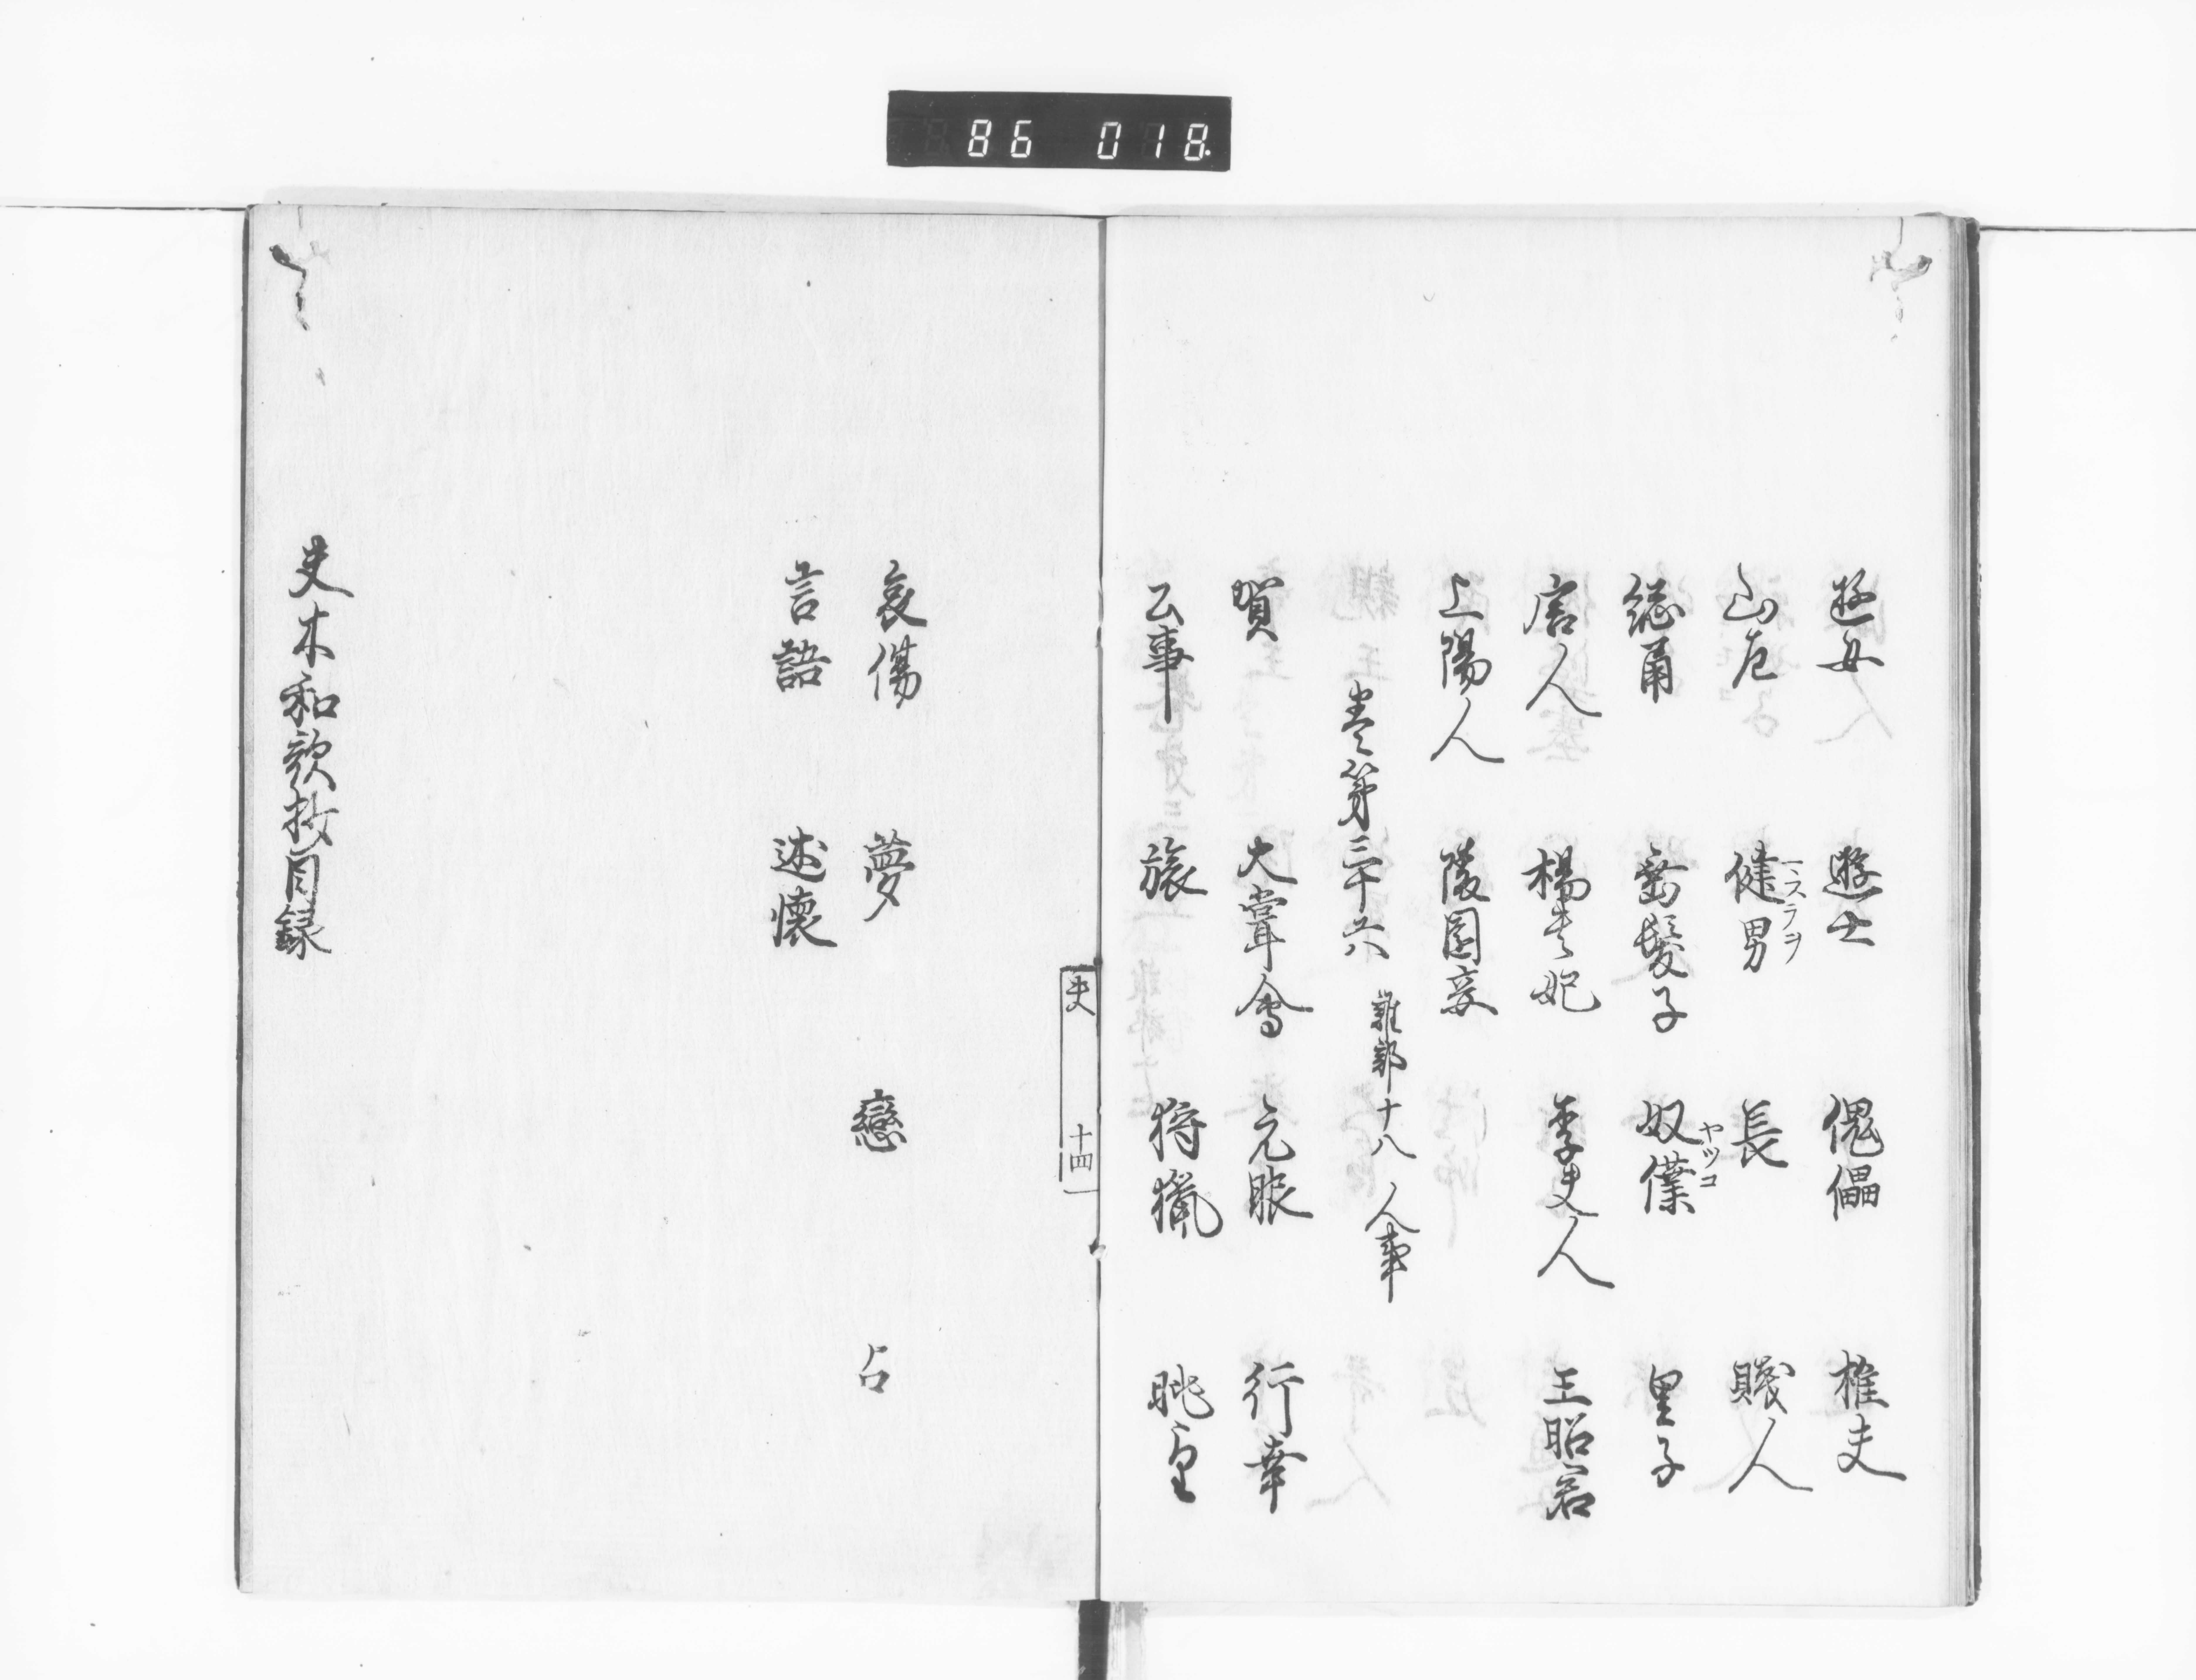 86 018
遊女 遊士 傀儡 樵夫
山左 健男 長 賤人
マスラヲ
総角 髫髪子 奴僕 里子
ヤツコ
唐人 楊貴妃 李夫人 王昭君
上陽人 陵園妾
巻第三十六 雑部十八 人事
賀 大嘗會 元服 行幸
公事 旅 狩猟 眺望
夫 十四
哀傷 夢 戀 占
言語 述懐
夫木和歌抄目録